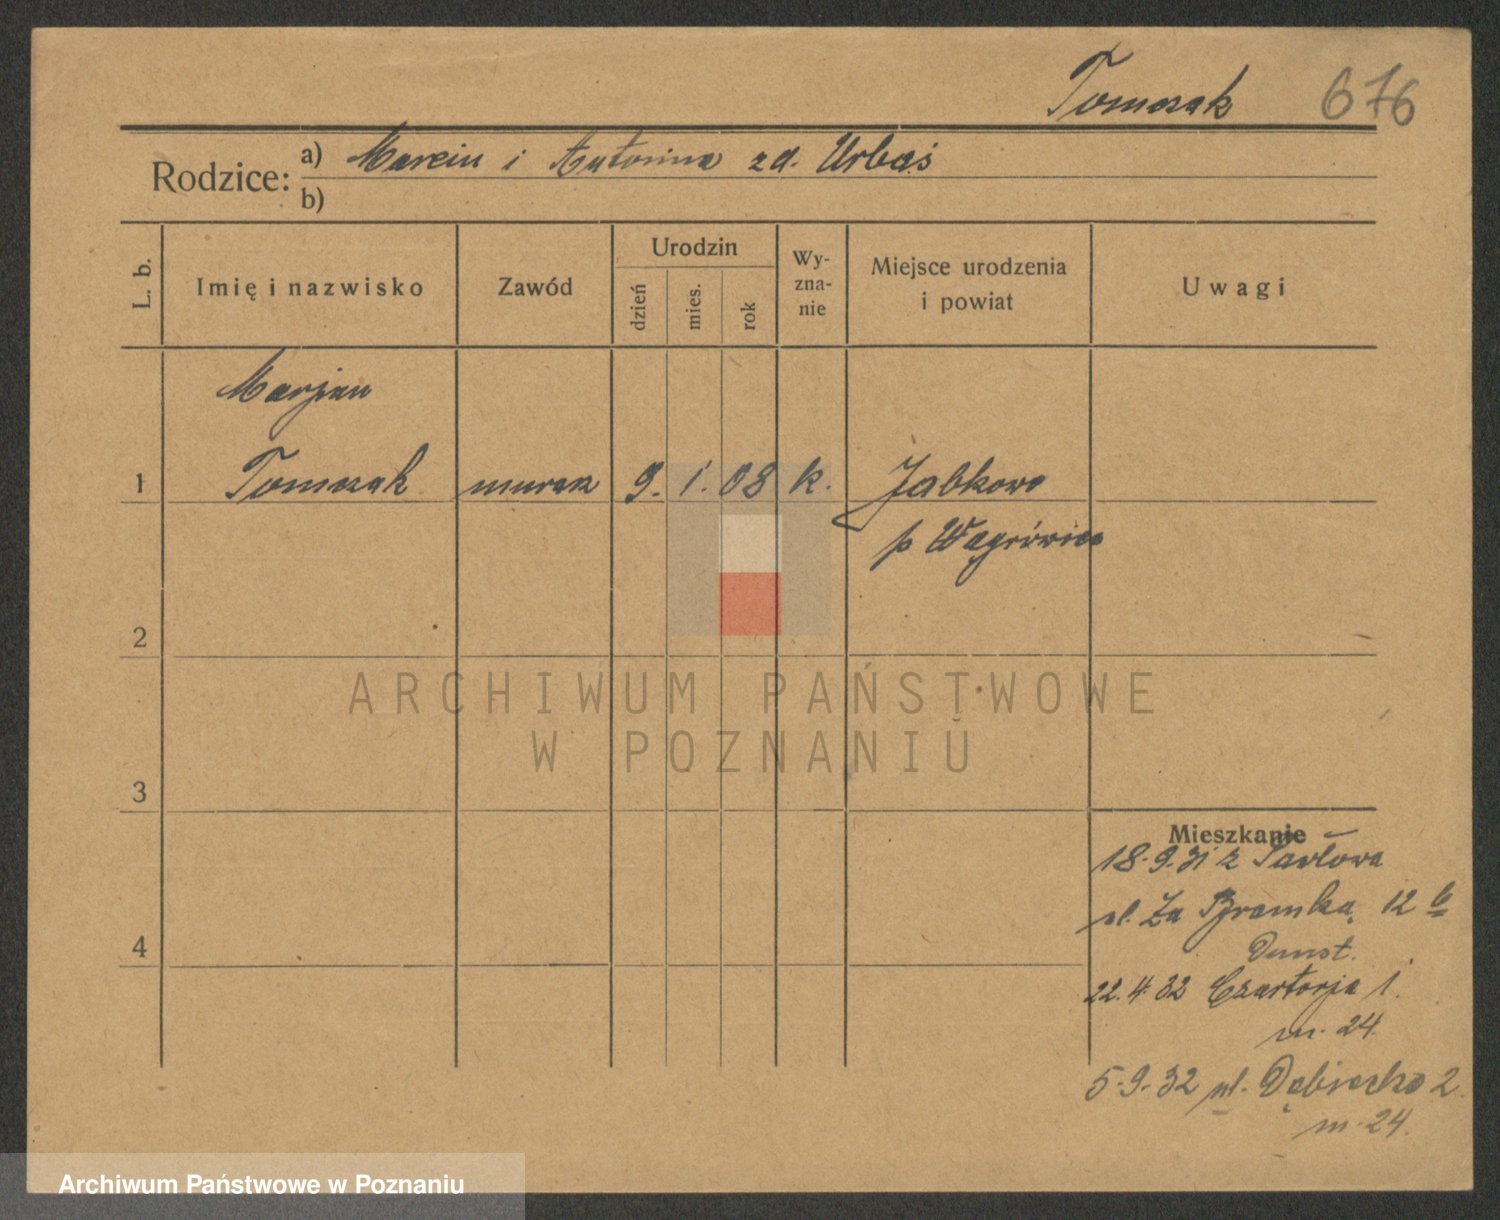 Tomczak 676
Rodzice: a) Marcin i Antonina zd. Urbaś
b)
L. b.
Imię i nazwisko
Zawód
Urodzin
dzień
mies.
rok
Wy-
zna-
nie
Miejsce urodzenia
i powiat
Uwagi
Marjan
1 Tomczak murarz 9. 1. 08 k. Jabkowo
p Wągrówiec
2
ARCHIWUM PAŃSTWOWE
W POZNANIU
3
Mieszkanie
18.9.31 z Pawłowa
ul. Za Bramką 12 b
4
22.4.32 Czartorja 1.
m. 24.
5.9.32 ul. Dębiecka 2.
m. 24.
Archiwum Państwowe w Poznaniu